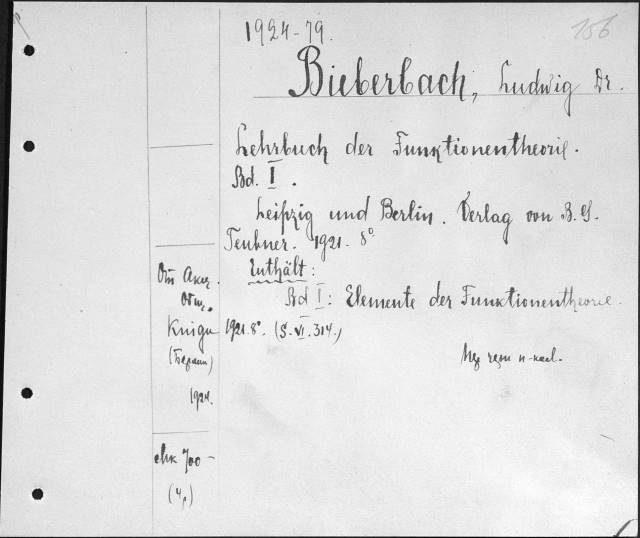 1924-79.
156
Bieberbach, Ludwig Dr.
Lehrbuch der Funktionentheorie.
Bd. I.
Leipzig und Berlin. Verlag von B. G.
Teubner. 1921. 8°
Enthält:
Bd I: Elemente der Funktionentheorie.
1921. 8°. (S. VI. 314.)
От Акц.
Общ.
Книга
(Берлин)
1924.
700-
(Чр)